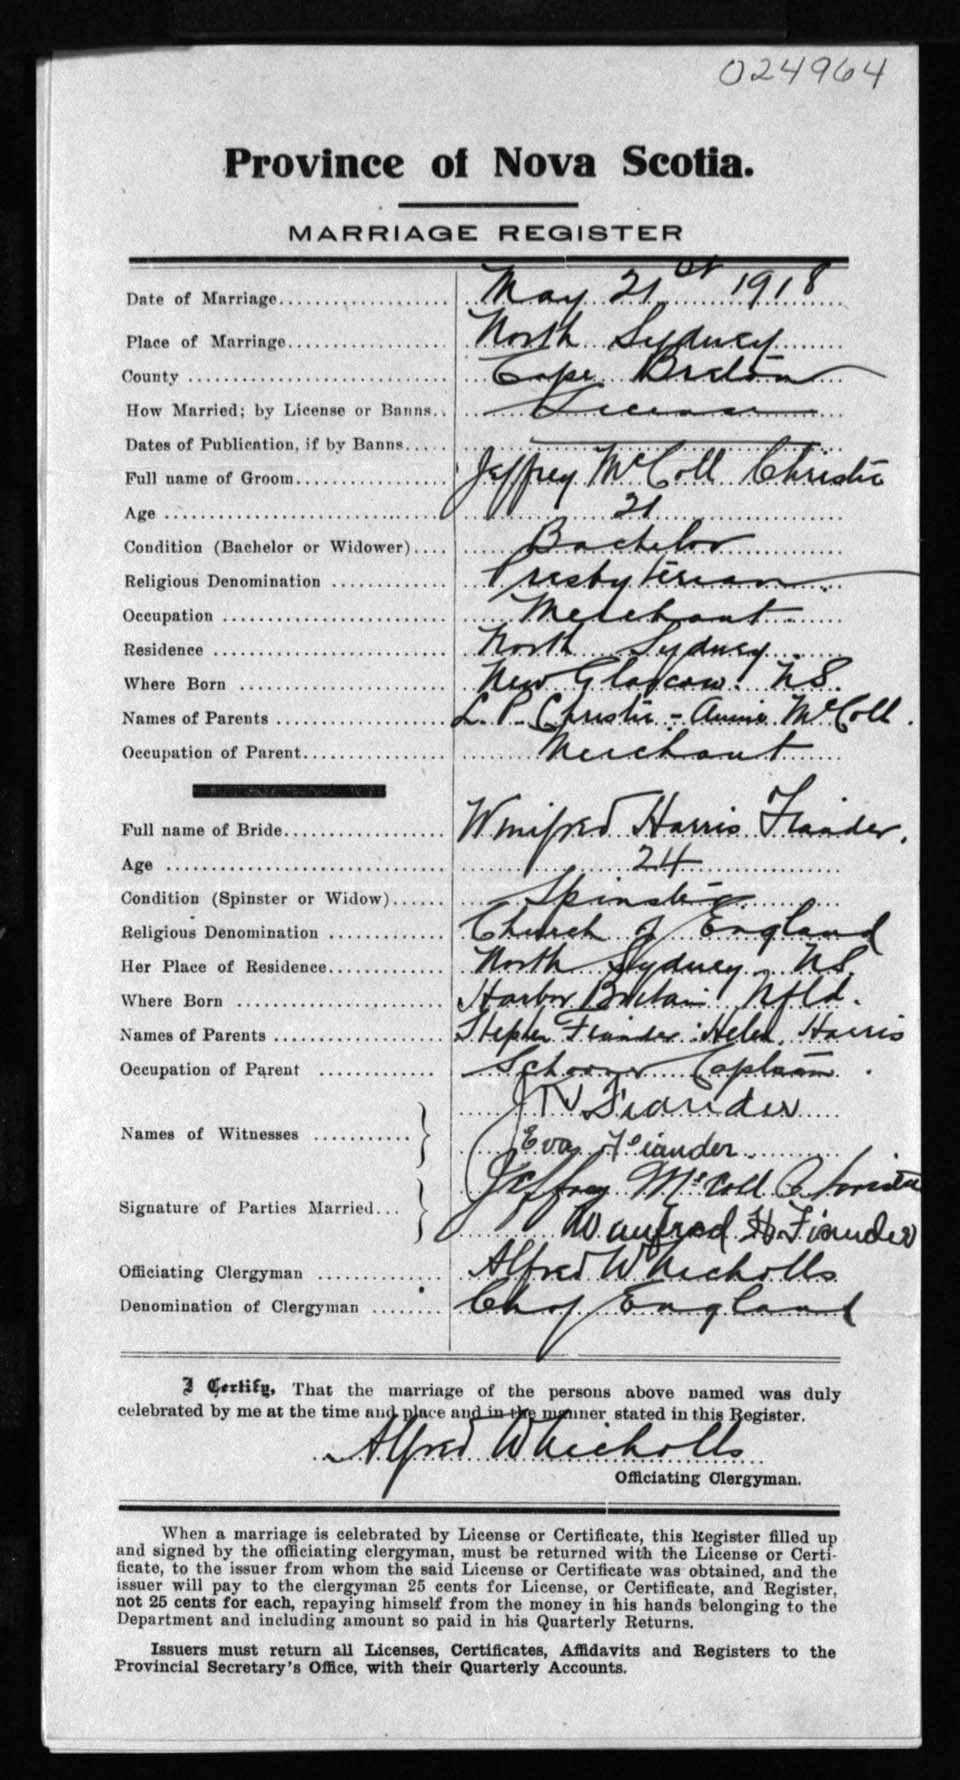 024964
Province of Nova Scotia.
MARRIAGE REGISTER
Date of Marriage May 21st 1918
Place of Marriage North Sydney
County Cape Breton
How Married; by License or Banns License
Dates of Publication, if by Banns
Full name of Groom Jeffrey McColl Christie
Age 21
Condition (Bachelor or Widower) Bachelor
Religious Denomination Presbyterian
Occupation Merchant
Residence North Sydney
Where Born New Glasgow N.S.
Names of Parents L. P. Christie - Annie McColl.
Occupation of Parent Merchant
Full name of Bride Winifred Harris Fiander.
Age 24
Condition (Spinster or Widow) Spinster
Religious Denomination Church of England
Her Place of Residence North Sydney N.S.
Where Born Harbor Breton Nfld.
Names of Parents Stephen Fiander : Helen Harris
Occupation of Parent Schooner Captain.
Names of Witnesses J Fiander
Eva Fiander
Signature of Parties Married Jeffrey McColl Christie
Winifred H. Fiander
Officiating Clergyman Alfred W Nicholls
Denomination of Clergyman Ch of England
I Certify, That the marriage of the persons above named was duly
celebrated by me at the time and place and in the manner stated in this Register.
Alfred W Nicholls
Officiating Clergyman.
When a marriage is celebrated by License or Certificate, this Register filled up
and signed by the officiating clergyman, must be returned with the License or Certi-
ficate, to the issuer from whom the said License or Certificate was obtained, and the
issuer will pay to the clergyman 25 cents for License, or Certificate, and Register,
not 25 cents for each, repaying himself from the money in his hands belonging to the
Department and including amount so paid in his Quarterly Returns.
Issuers must return all Licenses, Certificates, Affidavits and Registers to the
Provincial Secretary's Office, with their Quarterly Accounts.